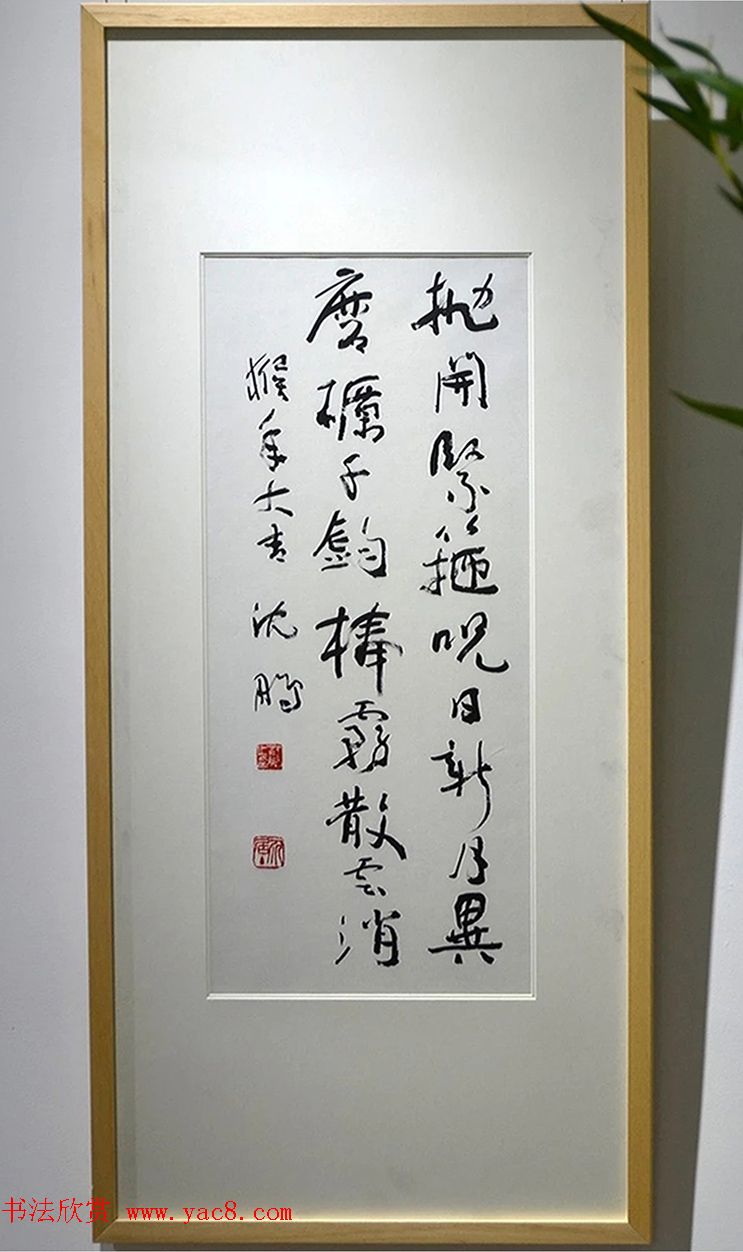 抛開緊箍呪日新月異
磨櫔千鈞棒霧散雲消
猴年大吉 沈鵬
书法欣赏 www.yac8.com